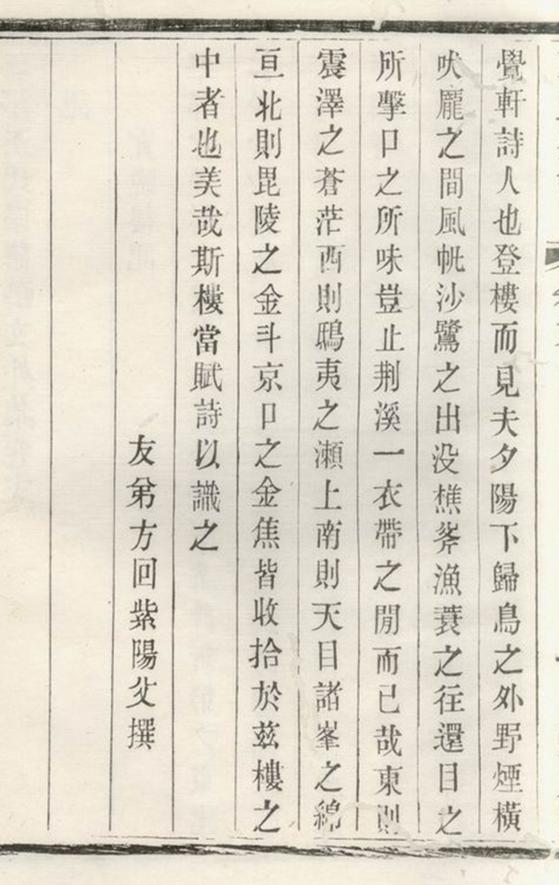 覺軒詩人也登樓而見夫夕陽下歸鳥之外野煙橫
吠龐之間風帆沙鷺之出没樵斧漁蓑之往還目之
所擊口之所味豈止荆溪一衣帶之閒而已哉東則
震澤之蒼茫西則鴟夷之瀬上南則天目諸峯之綿
亘北則毘陵之金斗京口之金焦皆收拾於兹樓之
中者也美哉斯樓當賦詩以識之
友弟方回紫陽父撰